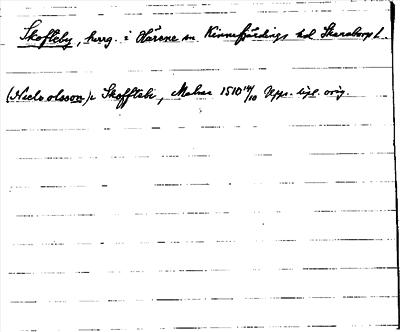 Skofteby, herrg. i Härene sn Kinnefjärdings hd Skaraborgs l.
(Niels olsson) i Skoffteby, Malme 1510 14/10 Upps. bibl. orig.